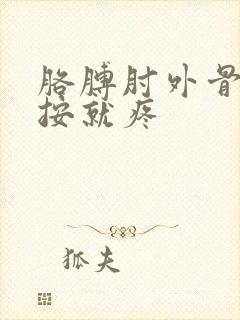 胳膊肘外骨
按就疼
狐夫